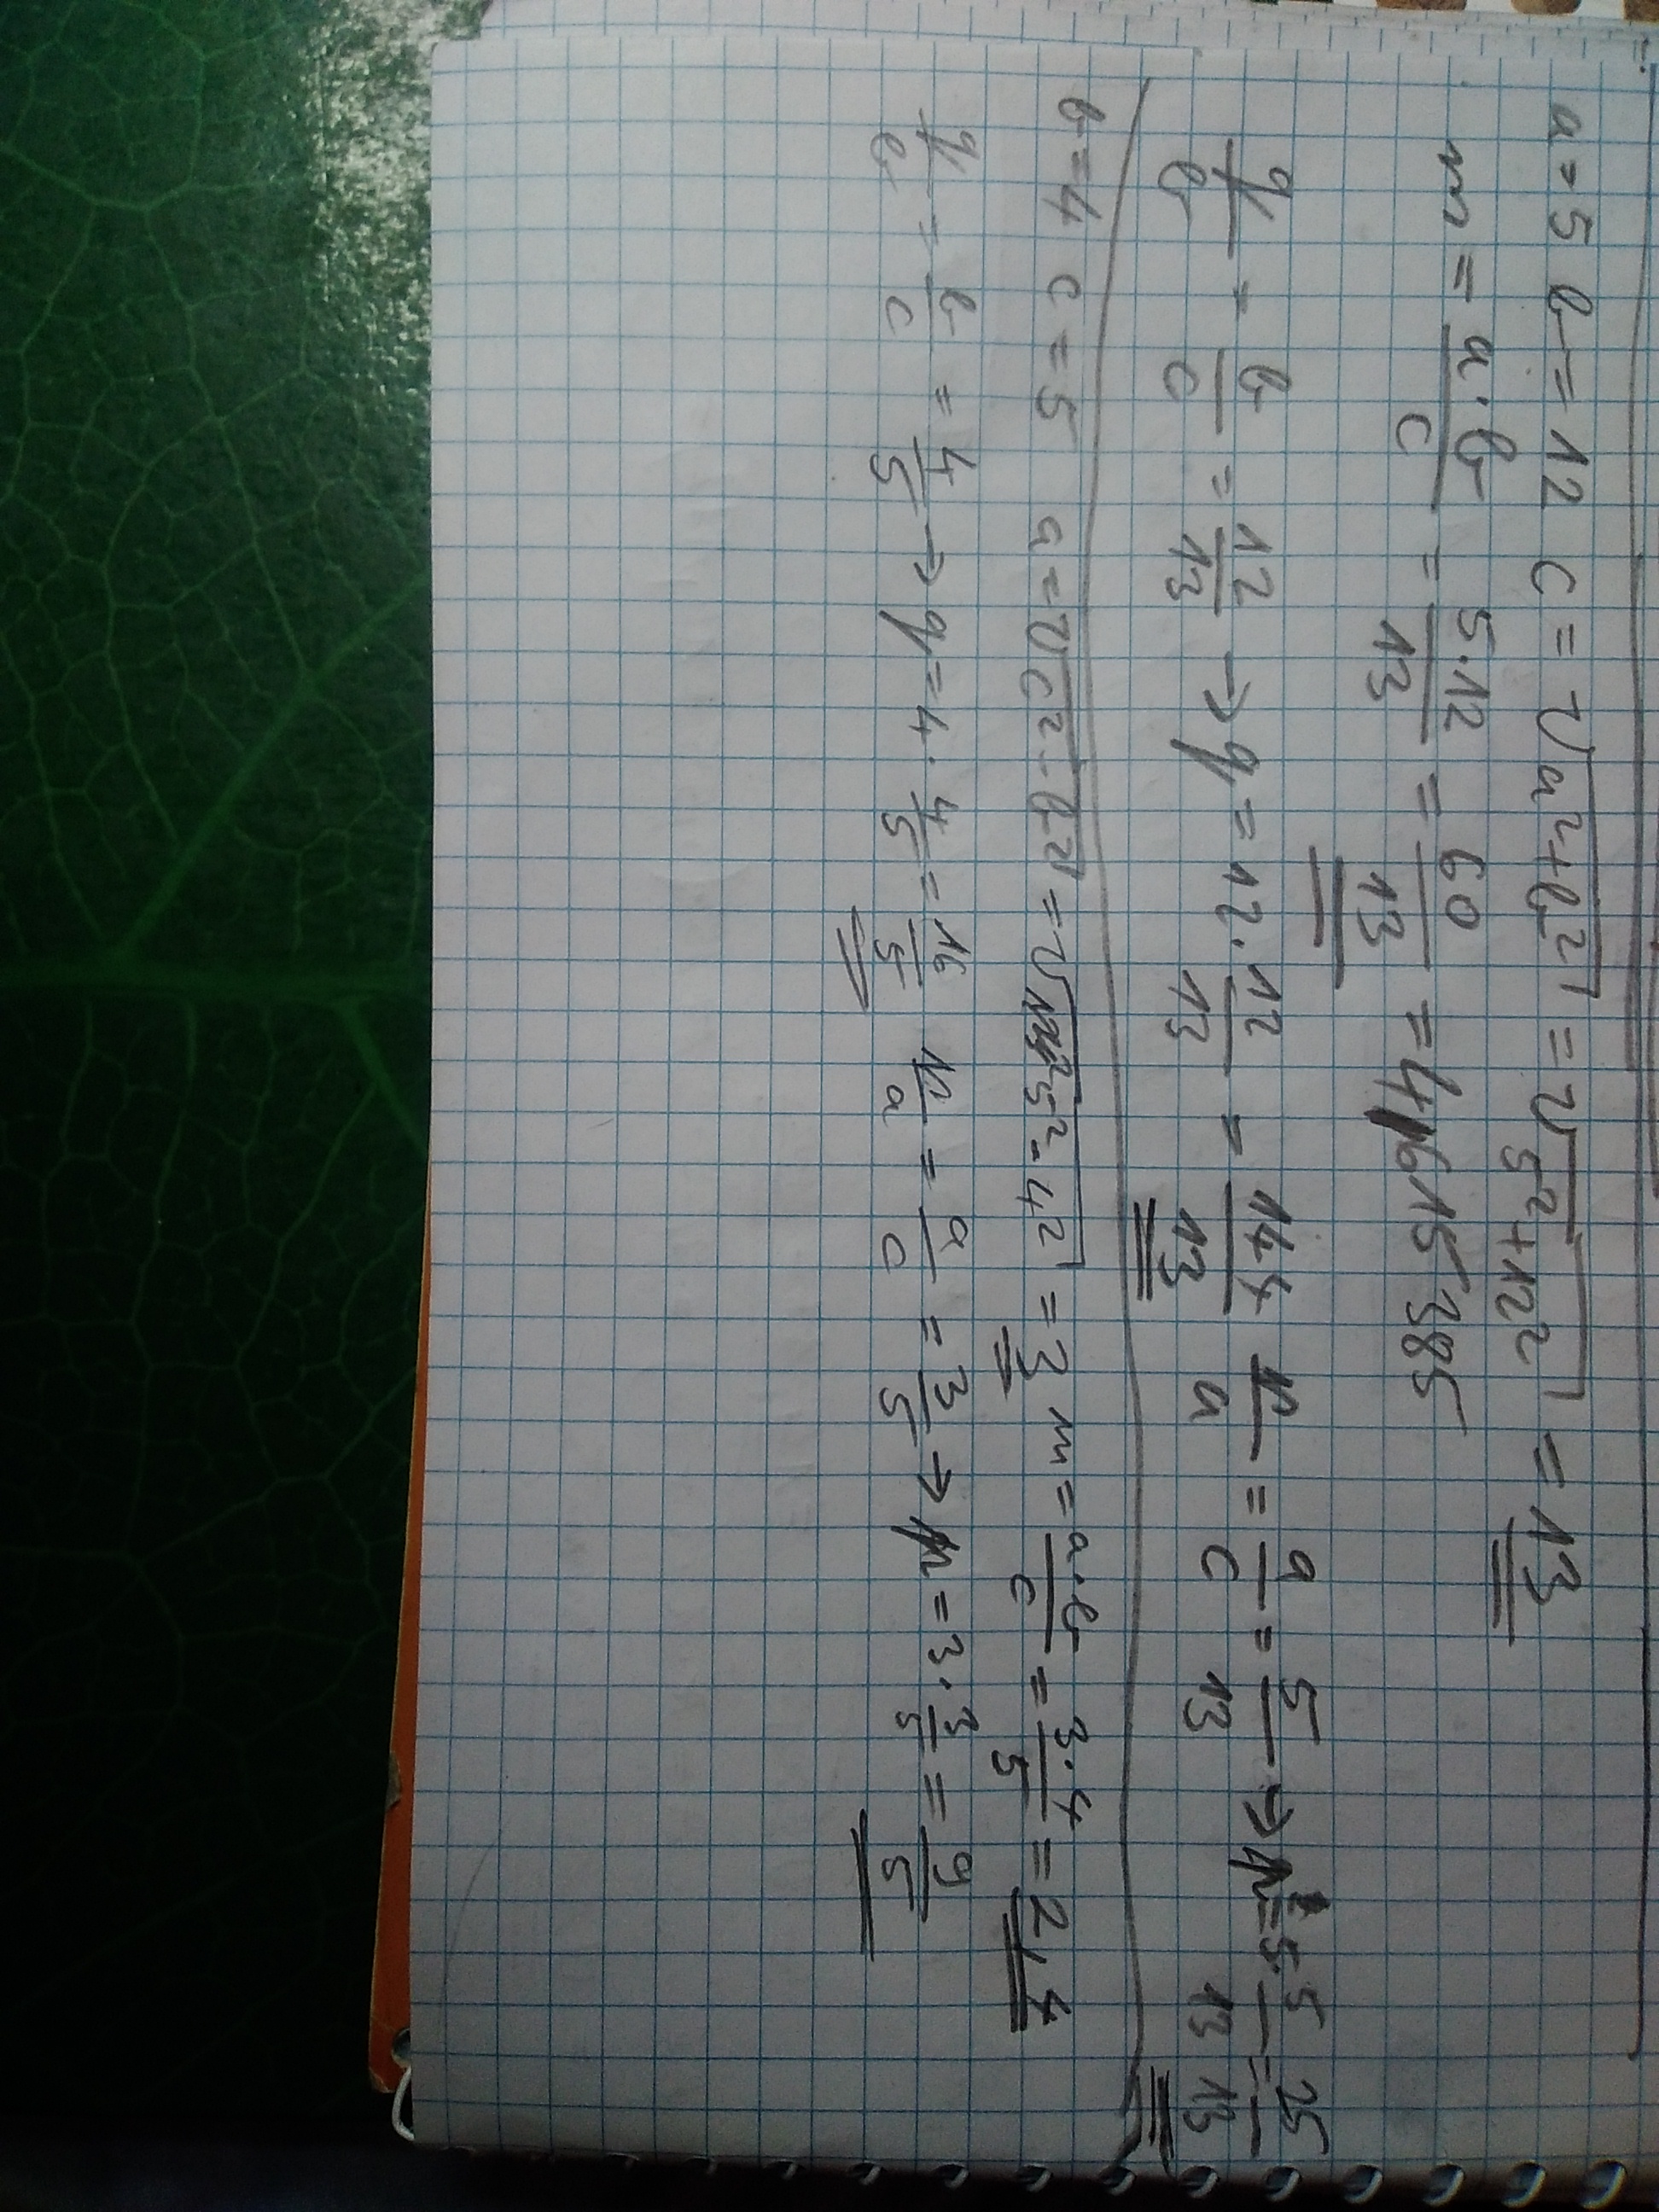 a = 5 b = 12 c = √a²+b² = √5²+12² = 13
m = a·b/c = 5·12/13 = 60/13 = 4,615385
q/b = b/c = 12/13 → q = 12·12/13 = 144/13 p/a = a/c = 5/13 → p = 5·5/13 = 25/13
b = 4 c = 5 a = √c²-b² = √5²-4² = 3 m = a·b/c = 3·4/5 = 2,4
q/b = b/c = 4/5 → q = 4·4/5 = 16/5 p/a = a/c = 3/5 → p = 3·3/5 = 9/5